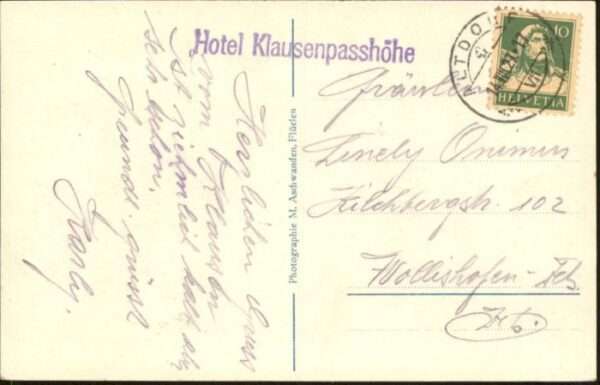 Hotel Klausenpasshöhe
Herzlichen Gruss
vom Klausen
ist ziehmlich kalt aber
sehr schön.
freundl. Grüsse
Photographie M. Aschwanden, Flüelen
ALTDORF
VII
10
HELVETIA
Fräulein
Linely Onimus
Kilchbergstr. 102
Wollishofen-Zch.
Zch.